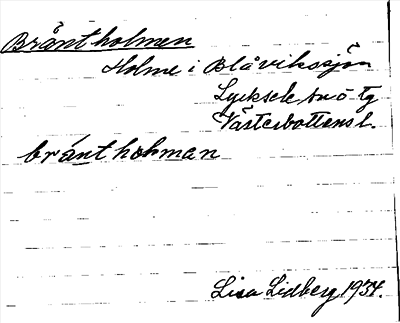 Bräntholmen
Holme i Blåvikssjön
Lycksele tg
Västerbottens l.
bräntholman
Lisa Lidberg 1934.